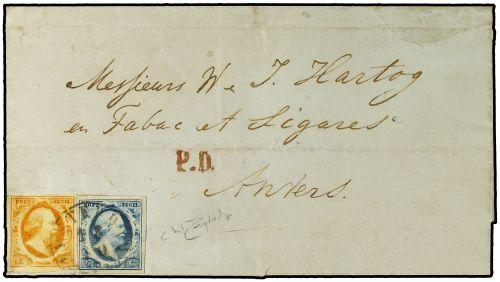 Messieurs W & J. Hartog
en Tabac et Sigares
P.D.
Anvers.
POST ZEGEL
POST ZEGEL